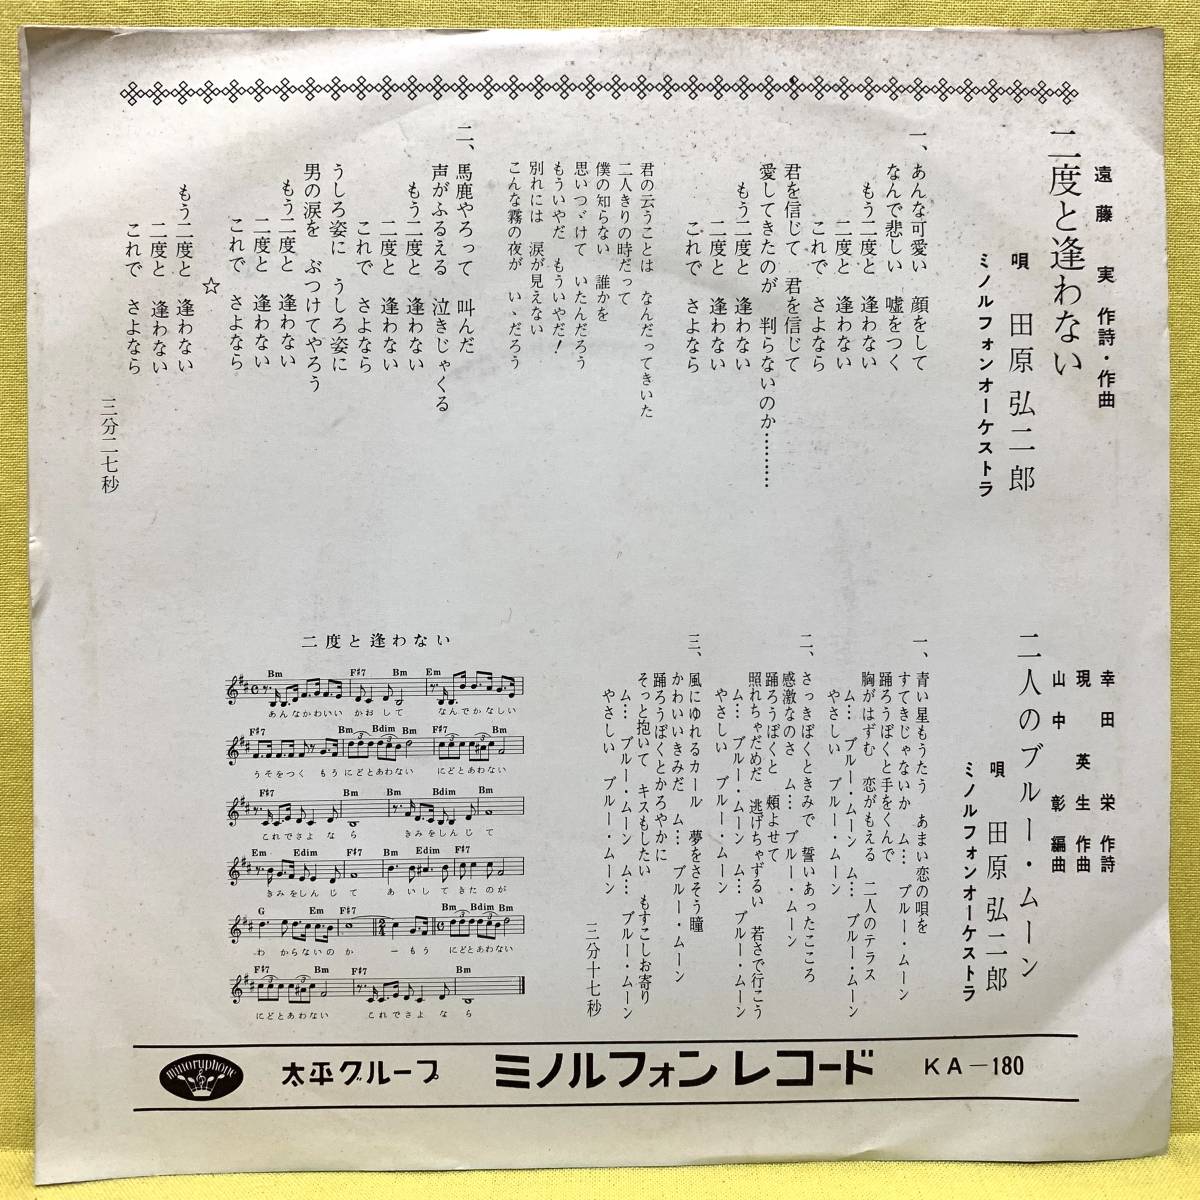 遠藤 実 作詩・作曲
二度と逢わない
唄 田原 弘二郎
ミノルフォンオーケストラ
一、あんな可愛い 顔をして
なんで悲しい 嘘をつく
もう二度と 逢わない
二度と 逢わない
これで さよなら
君を信じて 君を信じて
愛してきたのが 判らないのか………
もう二度と 逢わない
二度と 逢わない
これで さよなら
君の云うことは なんだってきいた
二人きりの時だって
僕の知らない 誰かを
思いつゞけて いたんだろう
もういやだ もういやだ!
別れには 涙が見えない
こんな霧の夜が いゝだろう
二、馬鹿やろって 叫んだ
声がふるえる 泣きじゃくる
もう二度と 逢わない
二度と 逢わない
これで さよなら
うしろ姿に うしろ姿に
男の涙を ぶつけてやろう
もう二度と 逢わない
二度と 逢わない
これで さよなら
☆
もう二度と 逢わない
二度と 逢わない
これで さよなら
三分二七秒
幸田 栄 作詩
現 英生 作曲
山中 彰 編曲
二人のブルー・ムーン
唄 田原 弘二郎
ミノルフォンオーケストラ
一、青い星もうたう あまい恋の唄を
すてきじゃないか ム… ブルー・ムーン
踊ろうぼくと手をくんで
胸がはずむ 恋がもえる 二人のテラス
ム… ブルー・ムーン ム… ブルー・ムーン
やさしい ブルー・ムーン
二、さっきぼくときみで 誓いあったこころ
感激なのさ ム… ブルー・ムーン
踊ろうぼくと 頬よせて
照れちゃだめだ 逃げちゃずるい 若さで行こう
ム… ブルー・ムーン ム… ブルー・ムーン
やさしい ブルー・ムーン
三、風にゆれるカール 夢をさそう瞳
かわいいきみだ ム… ブルー・ムーン
踊ろうぼくとかろやかに
そっと抱いて キスもしたい もすこしお寄り
ム… ブルー・ムーン ム… ブルー・ムーン
やさしい ブルー・ムーン
三分十七秒
二度と逢わない
Bm F#7 Bm Em
あんなかわいい かおして なんでかなしい
F#7 Bm Bdim Bm
うそをつく もうにどとあわない にどとあわない
F#7 Bm Bm Bdim Bm
これでさよ なら きみをしんじて
Em Bdim F#7 Em F#7
きみをしんじて あいしてきたのが
G Em F#7 Bm Bdim Bm
わ からないの か ーもう にどとあわない
F#7 Bm F#7 Bm
にどとあわない これでさよ な ら
mynoryphone 太平グループ ミノルフォンレコード KA-180